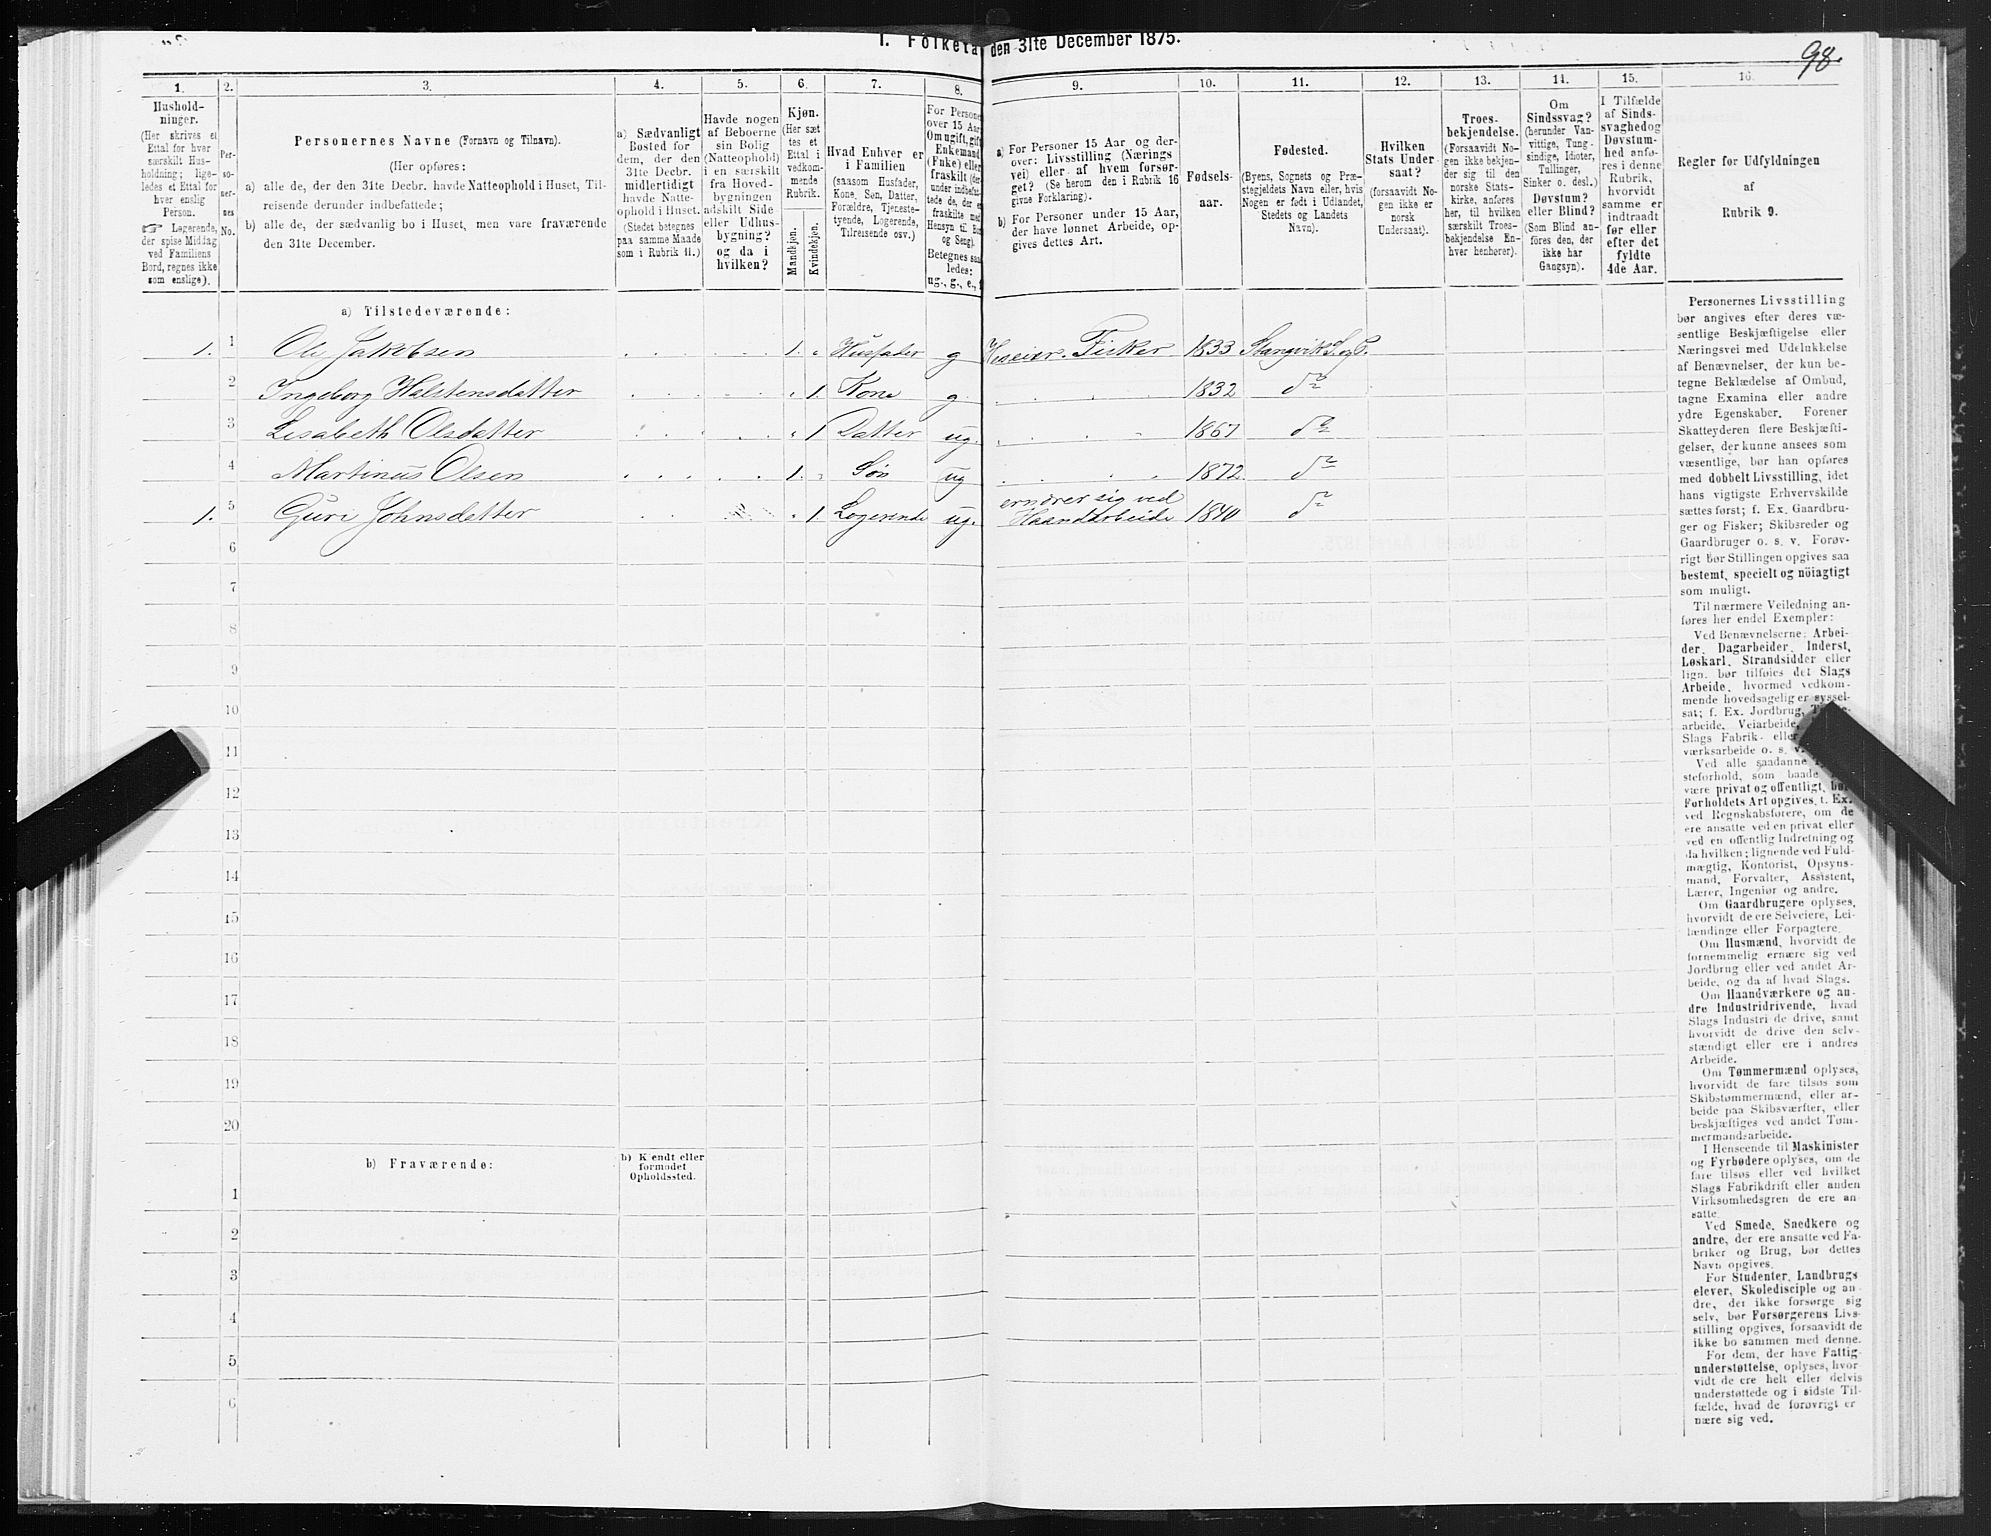 I. Folketæ den 31te December 1875.
98.
1. 2. 3. 4. 5. 6. 7. 8. 9. 10. 11. 12. 13. 14. 15. 16.
Hushold-
ninger.
(Her skrives et
Ettal for hver
særskilt Hus-
holdning; lige-
ledes et Ettal for
hver enslig
Person.
☞ Logerende,
der spise Middag
ved Familiens
Bord, regnes ikke
som enslige).
Per-
so-
ner-
nes
No.
Personernes Navne (Fornavn og Tilnavn).
(Her opføres:
a) alle de, der den 31te Decbr. havde Natteophold i Huset, Til-
reisende derunder indbefattede;
b) alle de, der sædvanlig bo i Huset, men vare fraværende
den 31te December.
a) Sædvanligt
Bosted for
dem, der den
31te Decbr.
midlertidigt
havde Natte-
ophold i Huset.
(Stedet betegnes
paa samme Maade
som i Rubrik 11.)
Havde nogen
af Beboerne
sin Bolig
(Natteophold)
i en særskilt
fra Hoved-
bygningen
adskilt Side
eller Udhus-
bygning?
og da i
hvilken?
Kjøn.
(Her sæt
tes et
Ettal i
vedkom-
mende
Rubrik.
Mandkjøn.
Kvindekjøn.
Hvad Enhver er
i Familien
(saasom Husfader,
Kone, Søn, Datter,
Forældre, Tjeneste-
tyende, Logerende,
Tilreisende osv.)
For Persone
over 15 Aar
Om ugift, gift
Enkemand
(Enke) eller
fraskilt (der-
under indbefat-
tede de, der e
fraskilte med
Hensyn til Bo
og Seng).
Betegnes saa
ledes:
ug., g., e., f
a) For Personer 15 Aar og der-
over: Livsstilling (Nærings
vei) eller af hvem forsør-
get? (Se herom den i Rubrik 16
givne Forklaring).
b) For Personer under 15 Aar,
der have lønnet Arbeide, op-
gives dettes Art.
Fødsels-
aar.
Fødested.
(Byens, Sognets og Præ-
stegjeldets Navn eller, hvis
Nogen er født i Udlandet,
Stedets og Landets
Navn).
Hvilken
Stats Under
saat?
(forsaavidt No-
gen ikke er
norsk
Undersaat).
Troes-
bekjendelse.
(Forsaavidt No-
gen ikke bekjen-
der sig til den
norske Stats-
kirke, anføres
her, til hvilken
særskilt Troes-
bekjendelse En-
hver henhører).
Om
Sindssvag?
(herunder Van-
vittige, Tung-
sindige, Idioter,
Tullinger,
Sinker o. desl.)
Døvstum?
eller Blind?
(Som Blind an-
føres den, der
ikke har
Gangsyn).
I Tilfælde
af Sinds-
svaghedog
Døvstum-
hed anfø-
res i denne
Rubrik,
hvorvidt
samme er
indtraadt
før eller
efter det
fyldte
4de Aar.
Regler for Udfyldningen
af
Rubrik 9.
a) Tilstedeværende:
1. 1 Ole Jakobsen 1. Husfader g Huseier. Fisker 1833 Stangvik S. og P.
2 Ingeborg Halstensdatter 1 Kone g 1832 do
3 Lisabeth Olsdatter 1 Datter ug. 1867 do
4 Martinus Olsen 1. Søn ug 1872 do
1. 5 Guri Johnsdatter 1. Logerende ug. ernærer sig ved
Haandarbeide 1840 do
6
7
8
9
10
11
12
13
14
15
16
17
18
19
20
b) Fraværende: b) Kjendt eller
formodet
Opholdssted.
1
2
3
4
5
6
Personernes Livsstilling
bør angives efter deres væ-
sentlige Beskjæftigelse eller
Næringsvei med Udelukkelse
af Benævnelser, der kun be-
tegne Beklædelse af Ombud,
tagne Examina eller andre
ydre Egenskaber. Forener
Skatteyderen flere Beskjæfti-
gelser, der kunne ansees som
væsentlige, bør han opføres
med dobbelt Livsstilling, idet
hans vigtigste Erhvervskilde
sættes først; f. Ex. Gaardbru-
ger og Fisker; Skibsreder og
Gaardbruger o. s. v. Forøv-
rigt bør Stillingen opgives saa
bestemt, specielt og nöiagtigt
som muligt.
Til nærmere Veiledning an-
føres her endel Exempler:
Ved Benævnelserne: Arbei-
der, Dagarbeider, Inderst,
Løskarl, Strandsidder eller
lign. bør tilføies det Slags
Arbeide, hvormed vedkom-
mende hovedsagelig er syssel-
sat; f. Ex. Jordbrug,
arbeide, Veiarbeide,
Slags Fabrik- eller
værksarbeide o. s. v.
Ved alle saadanne
steforhold, som baade
være privat og offentligt, bør
Forholdets Art opgives, t. Ex.
ved Regnskabsførere, om de
ere ansatte ved en privat eller
ved en offentlig Indretning og
da hvilken; lignende ved Fuld-
mægtig, Kontorist, Opsyns-
mand, Forvalter, Assistent,
Lærer, Ingeniør og andre.
Om Gaardbrugere oplyses,
hvorvidt de ere Selveiere, Lei-
lændinge eller Forpagtere.
Om Husmænd, hvorvidt de
fornemmelig ernære sig ved
Jordbrug eller ved andet Ar-
beide, og da af hvad Slags.
Om Haandværkere og an-
dre Industridrivende, hvad
Slags Industri de drive, samt
hvorvidt de drive den selv-
stændigt eller ere i andres
Arbeide.
Om Tømmermænd oplyses,
hvorvidt de fare tilsøs som
Skibstømmermænd, eller ar-
beide paa Skibsværfter, eller
beskjæftiges ved andet Tøm-
mermandsarbeide.
I Henseende til Maskinister
og Fyrbødere oplyses, om de
fare tilsøs eller ved hvilket
Slags Fabrikdrift eller anden
Virksomhedsgren de ere an-
satte.
Ved Smede, Snedkere og
andre, der ere ansatte ved Fa-
briker og Brug, bør dettes
Navn opgives.
For Studenter, Landbrugs
elever, Skoledisciple og an-
dre, der ikke forsørge sig
selv, bør Forsørgerens Livs-
stilling opgives, forsaavidt de
ikke bo sammen med denne.
For dem, der have Fattig-
understøttelse, oplyses, hvor-
vidt de ere helt eller delvis
understøttede og i sidste Til-
fælde, hvad de forøvrigt er
nære sig ved.